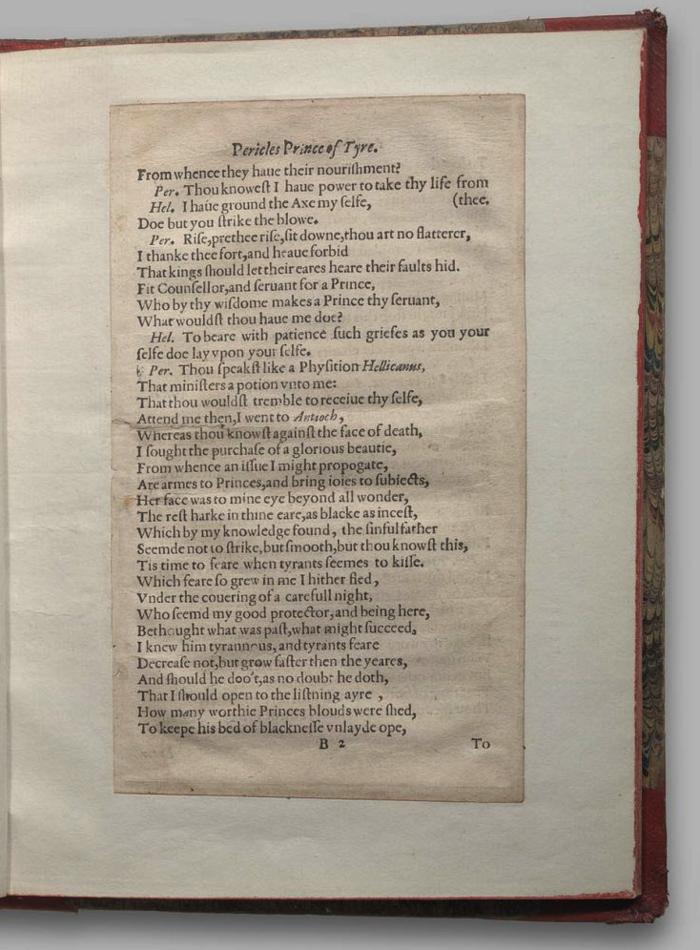 Pericles Prince of Tyre.
From whence they haue their nouriſhment?
Per. Thou knoweſt I haue power to take thy life from
Hel. I haue ground the Axe my ſelfe, (thee.
Doe but you ſtrike the blowe.
Per. Riſe,prethee riſe,ſit downe,thou art no flatterer,
I thanke thee fort,and heaue forbid
That kings ſhould let their eares heare their faults hid.
Fit Counſellor,and ſeruant for a Prince,
Who by thy wiſdome makes a Prince thy ſeruant,
What wouldſt thou haue me doe?
Hel. To beare with patience ſuch griefes as you your
ſelfe doe lay vpon your ſelfe.
Per. Thou ſpeakſt like a Phyſition Hellicanus,
That miniſters a potion vnto me:
That thou wouldſt tremble to receiue thy ſelfe,
Attend me then,I went to Antioch,
Whereas thou knowſt againſt the face of death,
I ſought the purchaſe of a glorious beautie,
From whence an iſſue I might propogate,
Are armes to Princes,and bring ioies to ſubiects,
Her face was to mine eye beyond all wonder,
The reſt harke in thine eare,as blacke as inceſt,
Which by my knowledge found, the ſinful father
Seemde not to ſtrike,but ſmooth,but thou knowſt this,
Tis time to feare when tyrants ſeemes to kiſſe.
Which feare ſo grew in me I hither fled,
Vnder the couering of a carefull night,
Who ſeemd my good protector,and being here,
Bethought what was paſt,what might ſucceed,
I knew him tyrannous,and tyrants feare
Decreaſe not,but grow faſter then the yeares,
And ſhould he doo't,as no doubt he doth,
That I ſhould open to the liſtning ayre ,
How many worthie Princes blouds were ſhed,
To keepe his bed of blackneſſe vnlayde ope,
B 2 To